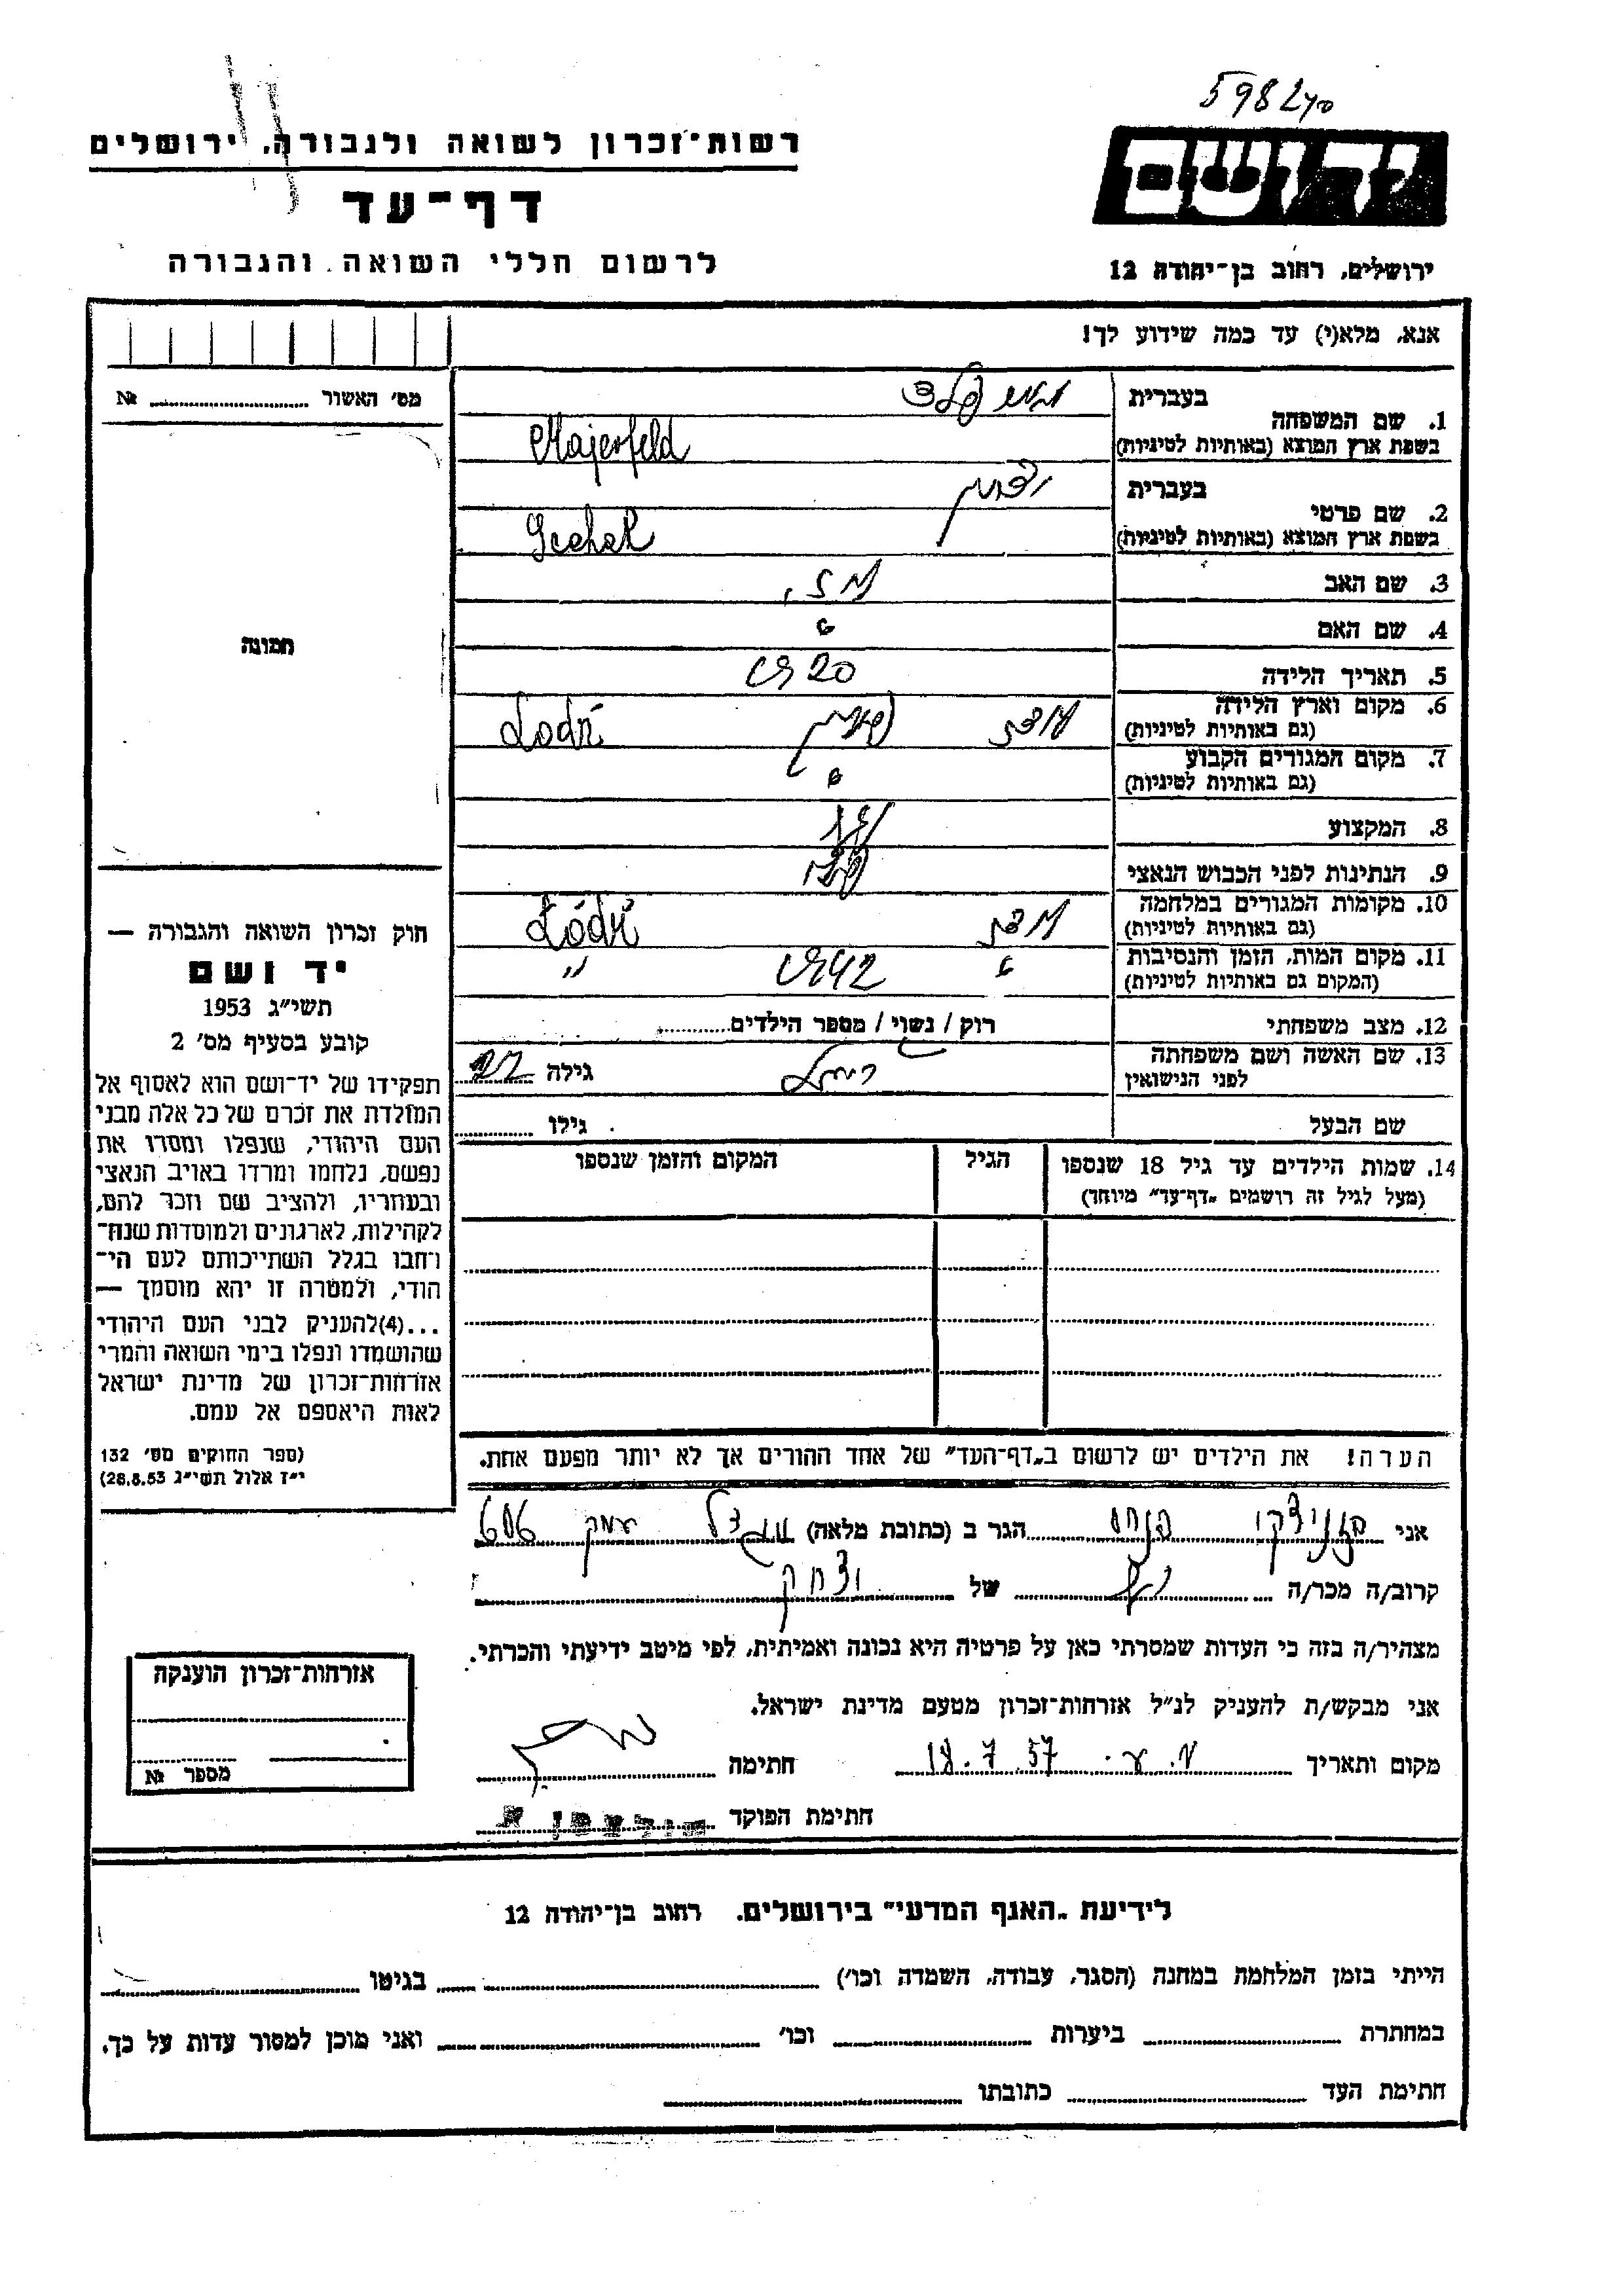 5982
רשות־זכרון לשואה ולגבורה, ירושלים
יד ושם
דף־עד
לרשום חללי השואה והגבורה
ירושלים, רחוב בן־יהודה 12
אנא, מלא(י) עד כמה שידוע לך!
מס' האשור № 
1. שם המשפחה
בעברית
בשפת ארץ המוצא (באותיות לטיניות) Majerfeld
2. שם פרטי
בעברית יצחק
בשפת ארץ המוצא (באותיות לטיניות) Icchak
3. שם האב
4. שם האם
תמונה
5. תאריך הלידה 20
6. מקום וארץ הלידה
(גם באותיות לטיניות) לודז פולין Lodź
7. מקום המגורים הקבוע
(גם באותיות לטיניות)
8. המקצוע
9. הנתינות לפני הכבוש הנאצי
10. מקומות המגורים במלחמה
(גם באותיות לטיניות) לודז Łódź
11. מקום המות, הזמן והנסיבות
(המקום גם באותיות לטיניות) 1942 "
12. מצב משפחתי רוק / נשוי / מספר הילדים
13. שם האשה ושם משפחתה
לפני הנישואין רחל גילה 22
שם הבעל גילו
14. שמות הילדים עד גיל 18 שנספו
(מעל לגיל זה רושמים „דף־עד" מיוחד)
הגיל
המקום והזמן שנספו
חוק זכרון השואה והגבורה —
יד ושם
תשי"ג 1953
קובע בסעיף מס' 2
תפקידו של יד־ושם הוא לאסוף אל
המולדת את זכרם של כל אלה מבני
העם היהודי, שנפלו ומסרו את
נפשם, נלחמו ומרדו באויב הנאצי
ובעוזריו, ולהציב שם וזכר להם,
לקהילות, לארגונים ולמוסדות שנח־
רבו בגלל השתייכותם לעם הי־
הודי, ולמטרה זו יהא מוסמך —
...(4)להעניק לבני העם היהודי
שהושמדו ונפלו בימי השואה והמרי
אזרחות־זכרון של מדינת ישראל
לאות היאספם אל עמם.
(ספר החוקים מס' 132
י"ז אלול תשי"ג 28.8.53)
הערה! את הילדים יש לרשום ב„דף־העד" של אחד ההורים אך לא יותר מפעם אחת.
אני פנחס הגר ב (כתובת מלאה) מגדל עמק 606
קרוב/ה מכר/ה של יצחק
מצהיר/ה בזה כי העדות שמסרתי כאן על פרטיה היא נכונה ואמיתית, לפי מיטב ידיעתי והכרתי.
אני מבקש/ת להעניק לנ"ל אזרחות־זכרון מטעם מדינת ישראל.
מקום ותאריך מ. ע. 18.7.57 חתימה
חתימת הפוקד
אזרחות־זכרון הוענקה
מספר №
לידיעת „האגף המדעי" בירושלים, רחוב בן־יהודה 12
הייתי בזמן המלחמה במחנה (הסגר, עבודה, השמדה וכו') בגיטו
במחתרת ביערות וכו' ואני מוכן למסור עדות על כך.
חתימת העד כתובתו